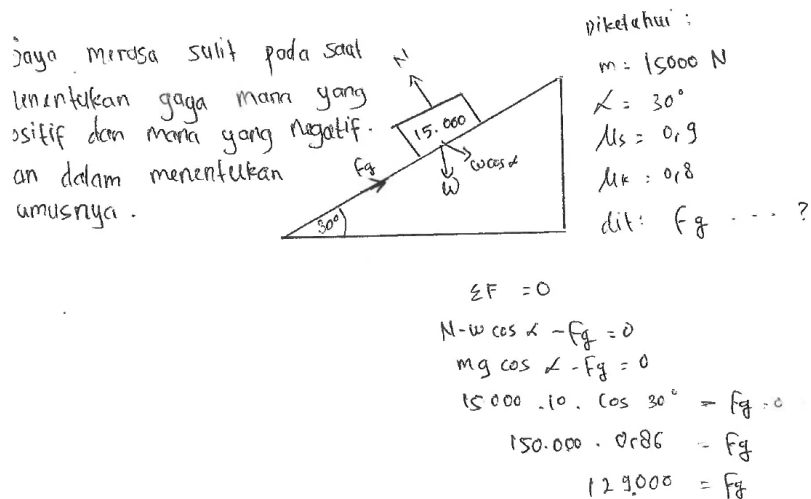 Saya merasa sulit pada saat
menentukan gaya mana yang
positif dan mana yang negatif.
an dalam menentukan
rumusnya.
N
15.000
fg
w cos α
W
30°
Diketahui :
m = 15000 N
α = 30°
μs = 0,9
μk = 0,8
dit: fg ... ?
ΣF = 0
N - w cos α - fg = 0
mg cos α - fg = 0
15000 . 10 . cos 30° - fg = 0
150.000 . 0,86 = fg
129.000 = fg